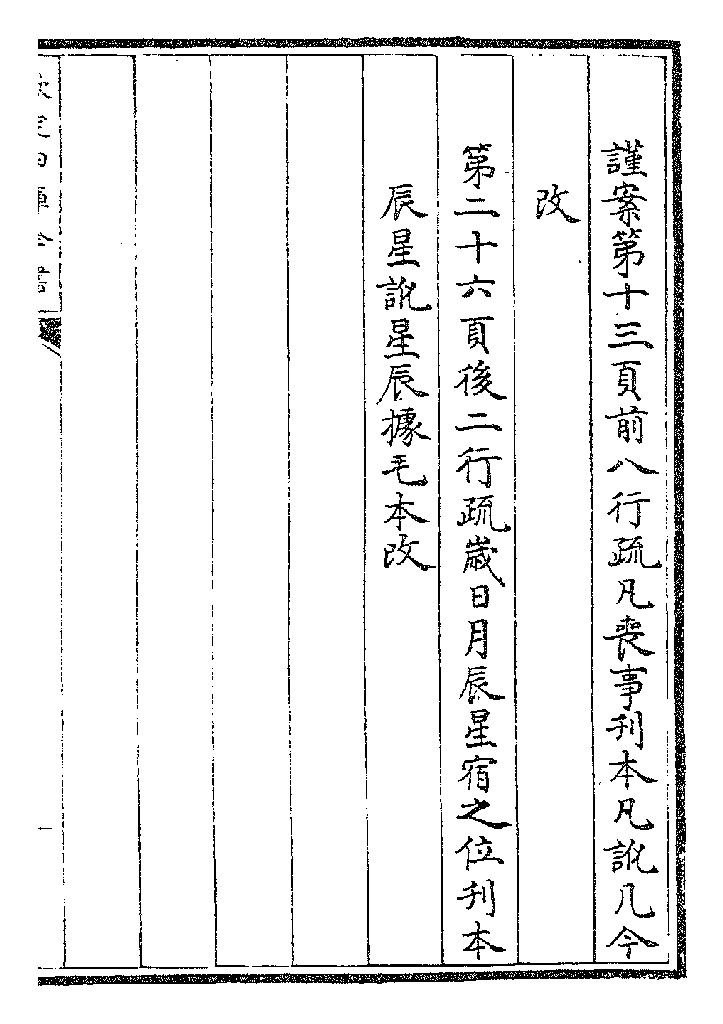 謹案第十三頁前八行疏凡喪事刊本凡訛几今
改
第二十六頁後二行疏歳日月辰星宿之位刊本
辰星訛星辰據毛本改
欽定四庫全書